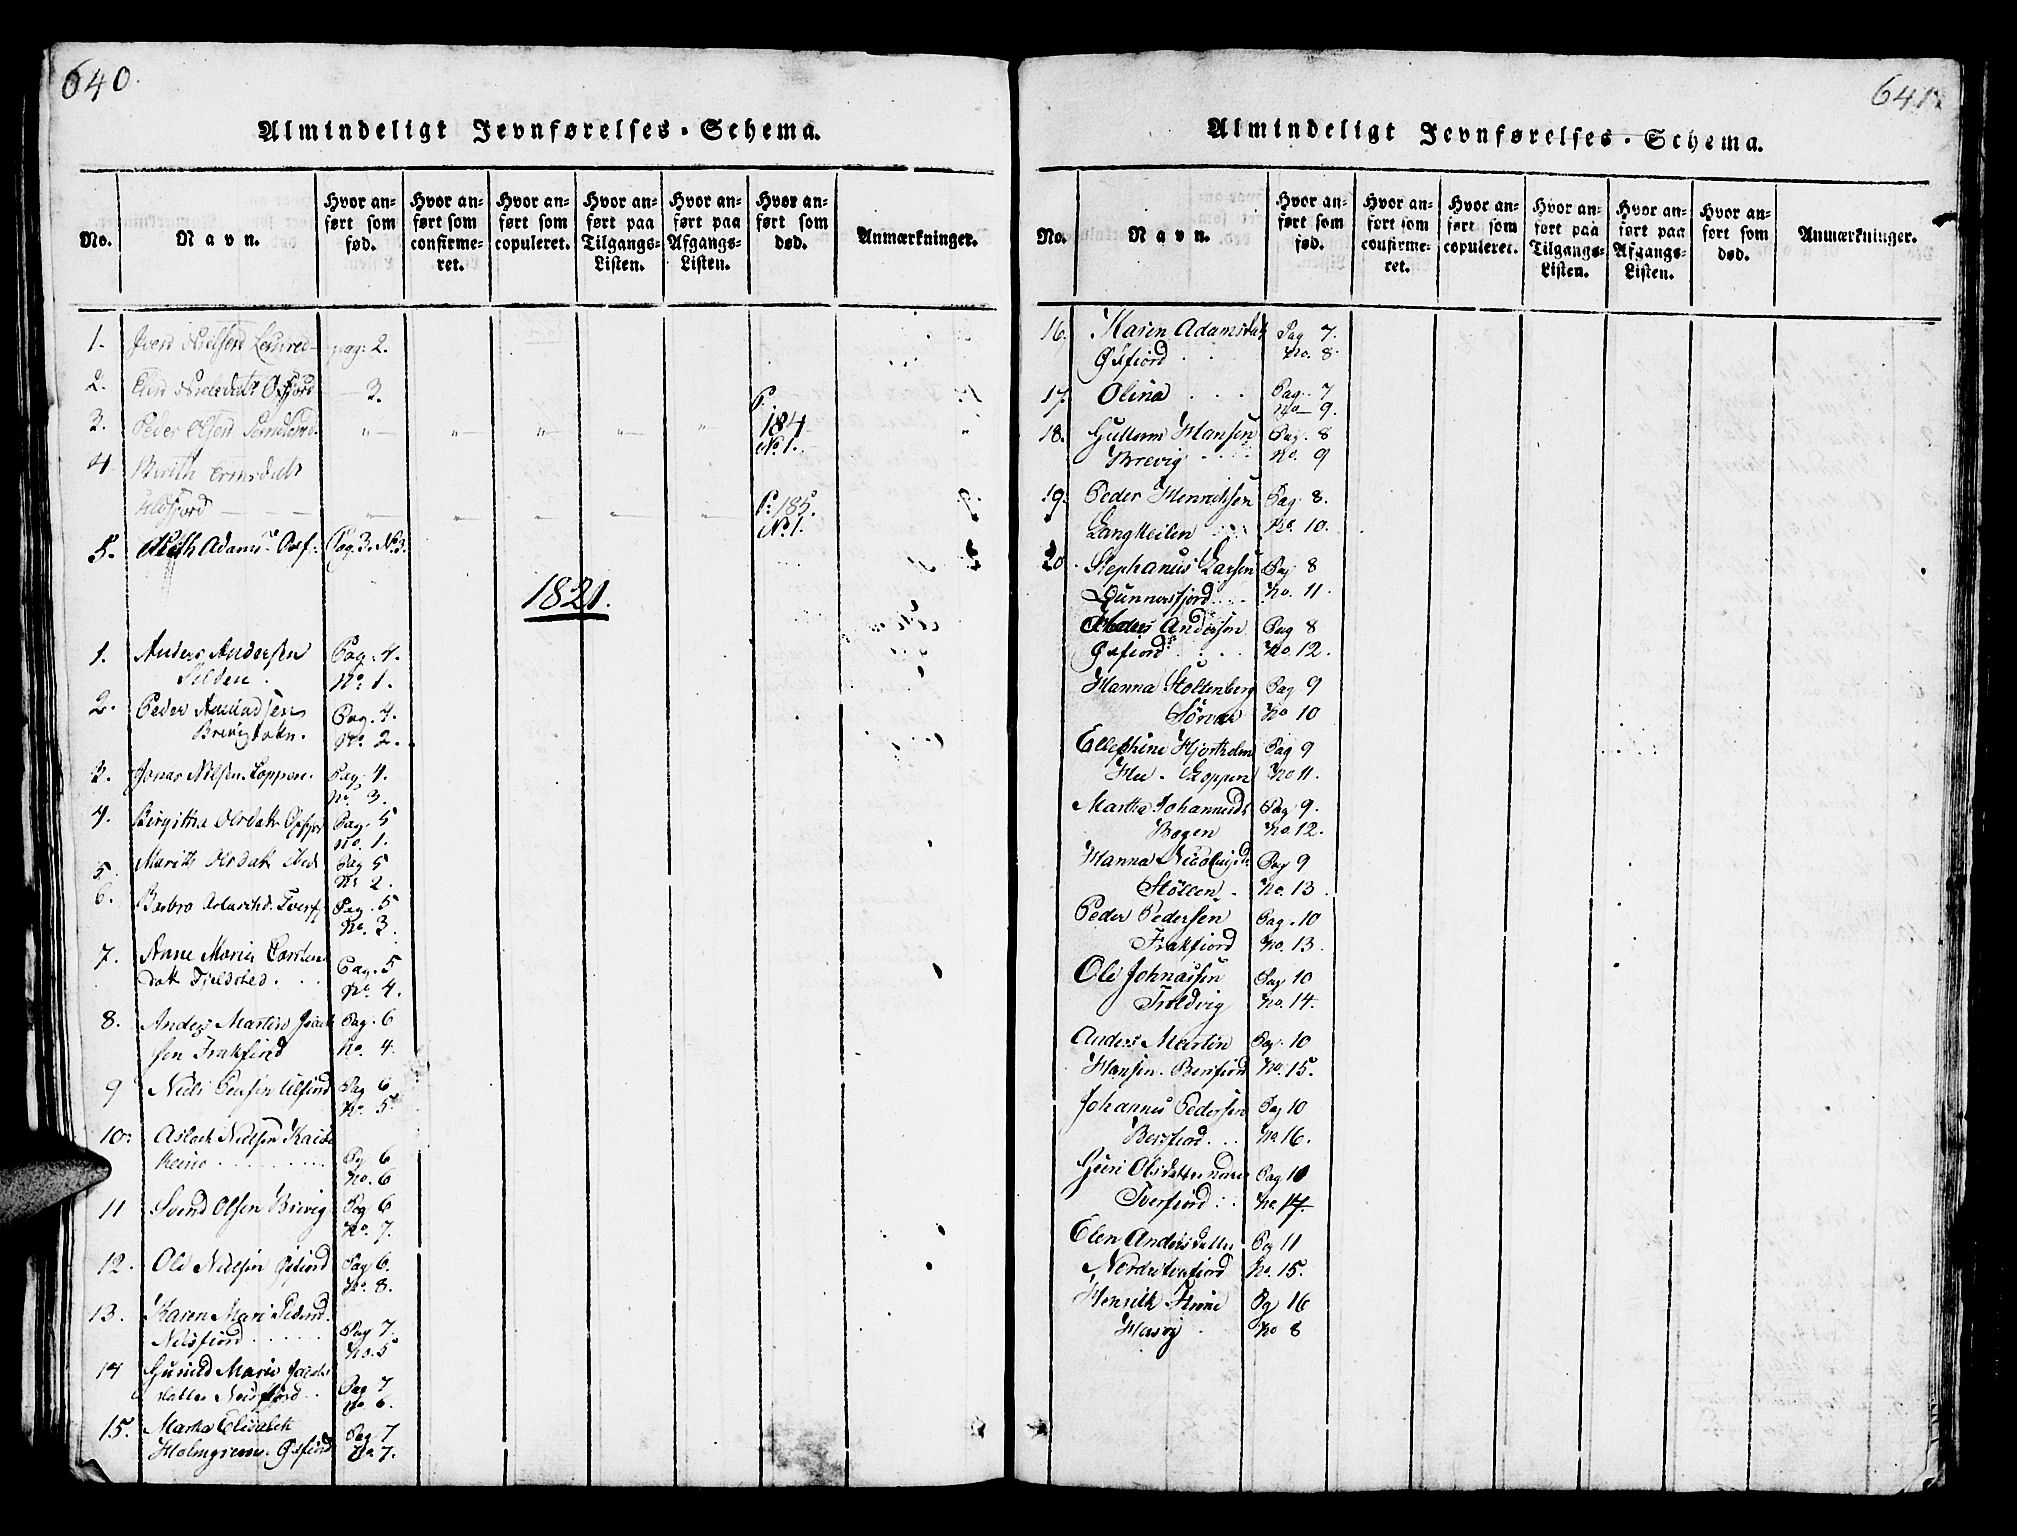 640.
Almindeligt Jevnførelses-Schema.
No.
Navn.
Hvor anført som fød.
Hvor anført som confirmeret.
Hvor anført som copuleret.
Hvor anført paa Tilgangs-Listen.
Hvor anført paa Afgangs-Listen.
Hvor anført som død.
Anmærkninger.
1. Iver Nielsen pag: 2.
2. 3.
3. Peder Olsen P. 184 No 1.
4 Berith
P: 185. No 1.
5. Adams Pag. 3. No 3.
1821.
1. Anders Andersen Pag: 4.
Silden. No. 1.
2. Peder Pag. 4.
No. 2.
3. Jonas Nilsen Loppen. Pag. 4.
No. 3.
4. Birgitha Olsdatr Pag. 5
No. 1.
5. Marith Olsdatr Pag 5
No 2.
6. Barbro Pag. 5
No. 3.
7. Anne Maria
datr Fieldsted. Pag. 5
No. 4.
8. Anders Martin Pag. 6
sen Frakfiord No. 4.
9 Niels Ulsfiord Pag 6
No. 5.
10. Aslach Nielsen Kauto
keino Pag 6
No. 6
11 Svend Olsen Brevig Pag 6
No. 7.
12. Ole Nielsen Øxfiord Pag 6.
No. 8.
13. Karen Mari Pedersd.
Nilsfiord Pag 7.
No. 5
14 Gunild Maria Jacobs
datter Pag 7
No 6.
15. Martha Elisabeth Pag 7
Holmgreen. Øxfiord No 7.
641.
Almindeligt Jevnførelses-Schema.
No.
Navn.
Hvor anført som fød.
Hvor anført som confirmeret.
Hvor anført som copuleret.
Hvor anført paa Tilgangs-Listen.
Hvor anført paa Afgangs-Listen.
Hvor anført som død.
Anmærkninger.
16. Karen Adamsdatr Pag 7.
Øxfiord No. 8.
17. Olina Pag. 7
No 9.
18. Guttorm Hansen Pag. 8
Brevig No. 9
19. Peder Henrichsen Pag. 8.
Langkeilen No. 10.
20. Stephanus Larsen Pag 8
Gunnersfjord No. 11.
Andersen Pag 8
Øxfiord No. 12.
Hanna Stoltenberg Pag 9
No 10
Ellephine Hjortholm Pag 9
Loppen No 11.
Martha Johannesd. Pag 9.
Bogen No. 12.
Hanna Nicolaisd. Pag 9
No. 13.
Peder Pedersen Pag. 10
Frakfiord No. 13.
Ole Johnassen Pag 10
Troldvig No. 14.
Anders Martin Pag. 10
Hansen. Bersfiord No. 15.
Johannes Pedersen Pag 10
Bersfiord. No. 16.
Guri Olsdatter Pag 10
Tverfiord No. 14.
Elen Andersdatter Pag 11
Nordretverfiord No. 15.
Henrich Pag 16
Hasvig No 8